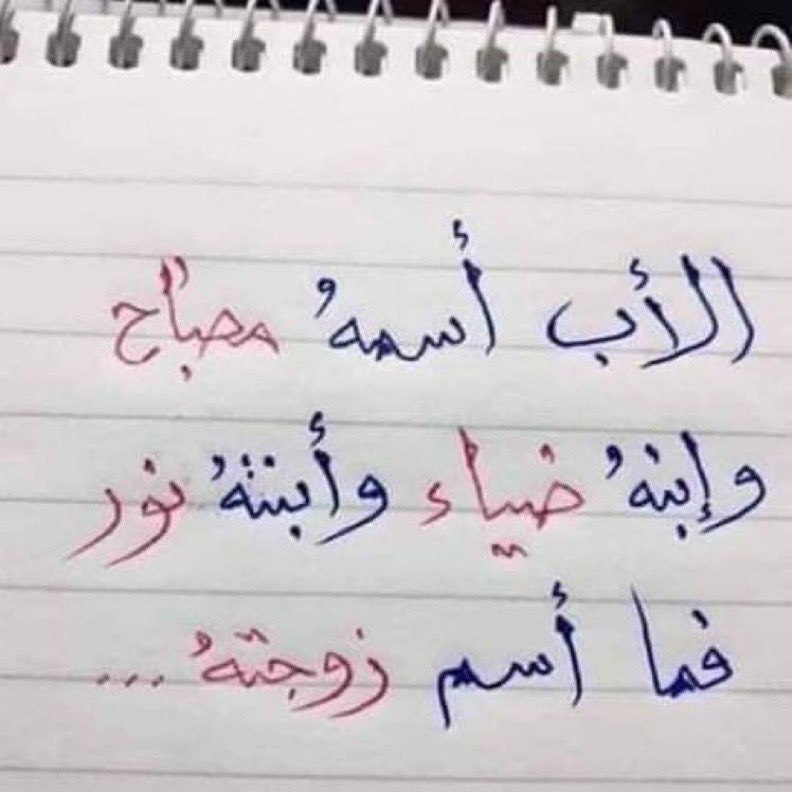 الأب أسمهُ مصباح
وإبنهُ ضياء وأبنتهُ نور
فما أسم زوجتهُ ...